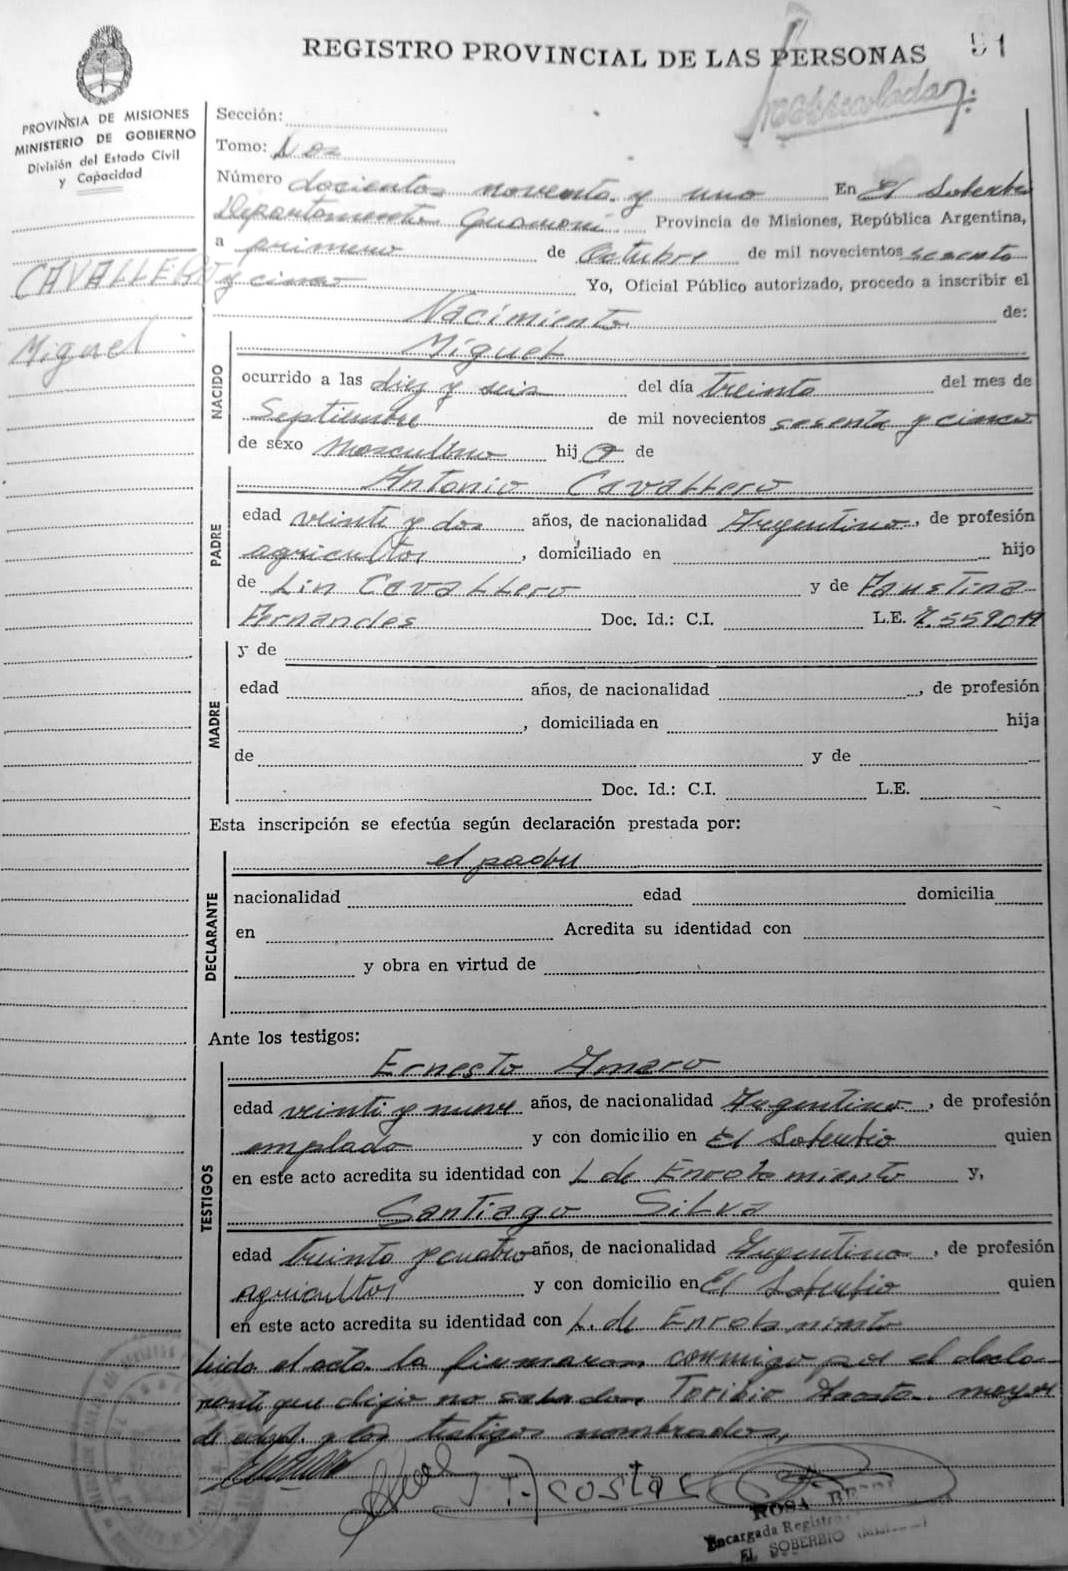 REGISTRO PROVINCIAL DE LAS PERSONAS
91
PROVINCIA DE MISIONES
MINISTERIO DE GOBIERNO
División del Estado Civil
y Capacidad
CAVALLERO
Miguel
Sección:
Tomo: Dos
Número docientos noventa y uno En El Soberbio
Departamento Guaraní Provincia de Misiones, República Argentina,
a primero de Octubre de mil novecientos sesenta
y cinco Yo, Oficial Público autorizado, procedo a inscribir el
Nacimiento de:
NACIDO
Miguel
ocurrido a las diez y seis del día treinta del mes de
Septiembre de mil novecientos sesenta y cinco
de sexo Masculino hij o de
PADRE
Antonio Cavallero
edad veinti y dos años, de nacionalidad Argentino, de profesión
agricultor, domiciliado en hijo
de Lin Cavallero y de Faustina
Fernandes Doc. Id.: C.I. L.E. 7.559.019
MADRE
y de
edad años, de nacionalidad , de profesión
, domiciliada en hija
de y de
Doc. Id.: C.I. L.E.
Esta inscripción se efectúa según declaración prestada por:
DECLARANTE
el padre
nacionalidad edad domicilia
en Acredita su identidad con
y obra en virtud de
Ante los testigos:
TESTIGOS
Ernesto Amaro
edad veinti y nueve años, de nacionalidad Argentino, de profesión
emplado y con domicilio en El Soberbio quien
en este acto acredita su identidad con L. de Enrolamiento y,
Santiago Silva
edad treinta y cuatro años, de nacionalidad Argentino, de profesión
agricultor y con domicilio en El Soberbio quien
en este acto acredita su identidad con L. de Enrolamiento
Leido el acta la firmaron conmigo por el decla-
rante que dijo no saber Toribio Acosta mayor
de edad y los testigos nombrados,
T. Acosta
ROSA
Encargada Registro
EL SOBERBIO